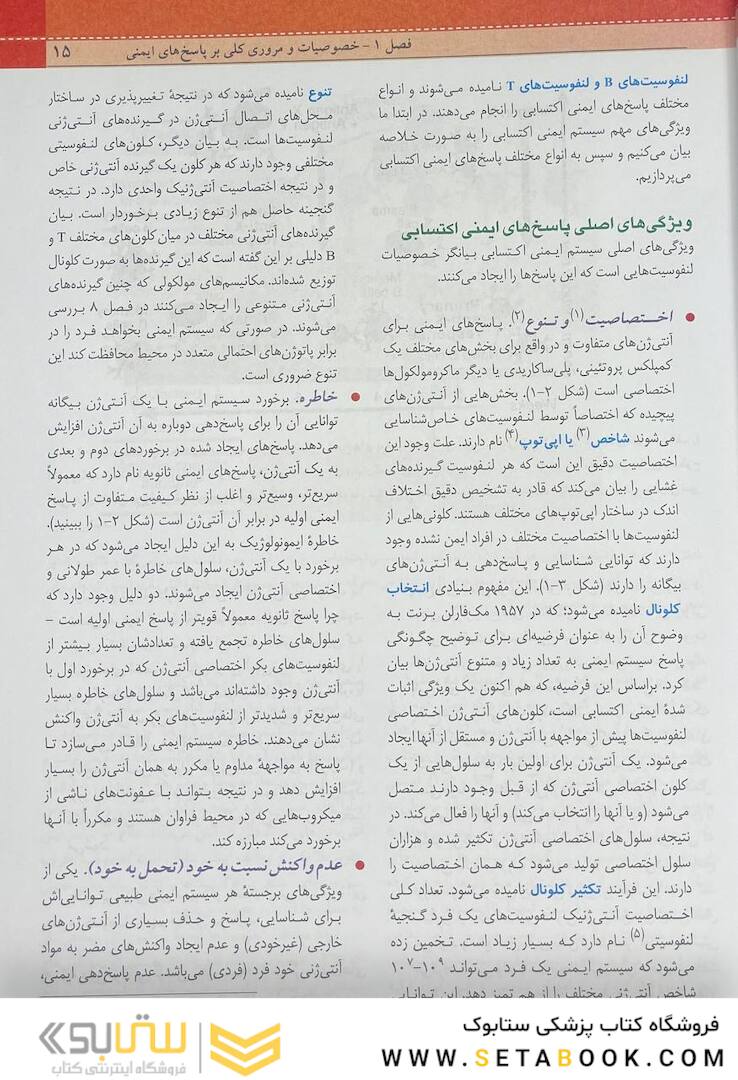 فصل ۱ - خصوصیات و مروری کلی بر پاسخ‌های ایمنی
۱۵
لنفوسیت‌های B و لنفوسیت‌های T نامیده می‌شوند و انواع
مختلف پاسخ‌های ایمنی اکتسابی را انجام می‌دهند. در ابتدا ما
ویژگی‌های مهم سیستم ایمنی اکتسابی را به صورت خلاصه
بیان می‌کنیم و سپس به انواع مختلف پاسخ‌های ایمنی اکتسابی
می‌پردازیم.
ویژگی‌های اصلی پاسخ‌های ایمنی اکتسابی
ویژگی‌های اصلی سیستم ایمنی اکتسابی بیانگر خصوصیات
لنفوسیت‌هایی است که این پاسخ‌ها را ایجاد می‌کنند.
● اختصاصیت(۱) و تنوع(۲). پاسخ‌های ایمنی برای
آنتی‌ژن‌های متفاوت و در واقع برای بخش‌های مختلف یک
کمپلکس پروتئینی، پلی‌ساکاریدی یا دیگر ماکرومولکول‌ها
اختصاصی است (شکل ۲-۱). بخش‌هایی از آنتی‌ژن‌های
پیچیده که اختصاصاً توسط لنفوسیت‌های خاص‌شناسایی
می‌شوند شاخص(۳) یا اپی‌توپ(۴) نام دارند. علت وجود این
اختصاصیت دقیق این است که هر لنفوسیت گیرنده‌های
غشایی را بیان می‌کند که قادر به تشخیص دقیق اختلاف
اندک در ساختار اپی‌توپ‌های مختلف هستند. کلونی‌هایی از
لنفوسیت‌ها با اختصاصیت مختلف در افراد ایمن نشده وجود
دارند که توانایی شناسایی و پاسخ‌دهی به آنتی‌ژن‌های
بیگانه را دارند (شکل ۳-۱). این مفهوم بنیادی انتخاب
کلونال نامیده می‌شود؛ که در ۱۹۵۷ مک‌فارلن برنت به
وضوح آن را به عنوان فرضیه‌ای برای توضیح چگونگی
پاسخ سیستم ایمنی به تعداد زیاد و متنوع آنتی‌ژن‌ها بیان
کرد. براساس این فرضیه، که هم اکنون یک ویژگی اثبات
شدهٔ ایمنی اکتسابی است، کلون‌های آنتی‌ژن اختصاصی
لنفوسیت‌ها پیش از مواجهه با آنتی‌ژن و مستقل از آنها ایجاد
می‌شود. یک آنتی‌ژن برای اولین بار به سلول‌هایی از یک
کلون اختصاصی آنتی‌ژن که از قبل وجود دارند متصل
می‌شود (و یا آنها را انتخاب می‌کند) و آنها را فعال می‌کند. در
نتیجه، سلول‌های اختصاصی آنتی‌ژن تکثیر شده و هزاران
سلول اختصاصی تولید می‌شود که همان اختصاصیت را
دارند. این فرآیند تکثیر کلونال نامیده می‌شود. تعداد کلی
اختصاصیت آنتی‌ژنیک لنفوسیت‌های یک فرد گنجینهٔ
لنفوسیتی(۵) نام دارد که بسیار زیاد است. تخمین زده
می‌شود که سیستم ایمنی یک فرد می‌تواند ۱۰۹-۱۰۷
شاخص آنتی‌ژنی مختلف را از هم تمیز دهد. این توانایی
تنوع نامیده می‌شود که در نتیجهٔ تغییرپذیری در ساختار
محل‌های اتصال آنتی‌ژن در گیرنده‌های آنتی‌ژنی
لنفوسیت‌ها است. به بیان دیگر، کلون‌های لنفوسیتی
مختلفی وجود دارند که هر کلون یک گیرنده آنتی‌ژنی خاص
و در نتیجه اختصاصیت آنتی‌ژنیک واحدی دارد. در نتیجه
گنجینه حاصل هم از تنوع زیادی برخوردار است. بیان
گیرنده‌های آنتی‌ژنی مختلف در میان کلون‌های مختلف T و
B دلیلی بر این گفته است که این گیرنده‌ها به صورت کلونال
توزیع شده‌اند. مکانیسم‌های مولکولی که چنین گیرنده‌های
آنتی‌ژنی متنوعی را ایجاد می‌کنند در فصل ۸ بررسی
می‌شوند. در صورتی که سیستم ایمنی بخواهد فرد را در
برابر پاتوژن‌های احتمالی متعدد در محیط محافظت کند این
تنوع ضروری است.
● خاطره. برخورد سیستم ایمنی با یک آنتی‌ژن بیگانه
توانایی آن را برای پاسخ‌دهی دوباره به آن آنتی‌ژن افزایش
می‌دهد. پاسخ‌های ایجاد شده در برخوردهای دوم و بعدی
به یک آنتی‌ژن، پاسخ‌های ایمنی ثانویه نام دارد که معمولاً
سریع‌تر، وسیع‌تر و اغلب از نظر کیفیت متفاوت از پاسخ
ایمنی اولیه در برابر آن آنتی‌ژن است (شکل ۲-۱ را ببینید).
خاطرهٔ ایمونولوژیک به این دلیل ایجاد می‌شود که در هر
برخورد با یک آنتی‌ژن، سلول‌های خاطرهٔ با عمر طولانی و
اختصاصی آنتی‌ژن ایجاد می‌شوند. دو دلیل وجود دارد که
چرا پاسخ ثانویه معمولاً قویتر از پاسخ ایمنی اولیه است –
سلول‌های خاطره تجمع یافته و تعدادشان بسیار بیشتر از
لنفوسیت‌های بکر اختصاصی آنتی‌ژن که در برخورد اول با
آنتی‌ژن وجود داشته‌اند می‌باشد و سلول‌های خاطره بسیار
سریع‌تر و شدیدتر از لنفوسیت‌های بکر به آنتی‌ژن واکنش
نشان می‌دهند. خاطره سیستم ایمنی را قادر می‌سازد تا
پاسخ به مواجههٔ مداوم یا مکرر به همان آنتی‌ژن را بسیار
افزایش دهد و در نتیجه بتواند با عفونت‌های ناشی از
میکروب‌هایی که در محیط فراوان هستند و مکرراً با آنها
برخورد می‌کند مبارزه کند.
● عدم واکنش نسبت به خود (تحمل به خود). یکی از
ویژگی‌های برجستهٔ هر سیستم ایمنی طبیعی توانایی‌اش
برای شناسایی، پاسخ و حذف بسیاری از آنتی‌ژن‌های
خارجی (غیرخودی) و عدم ایجاد واکنش‌های مضر به مواد
آنتی‌ژنی خود فرد (فردی) می‌باشد. عدم پاسخ‌دهی ایمنی،
فروشگاه کتاب پزشکی ستابوک
WWW.SETABOOK.COM
ستابوک
فروشگاه اینترنتی کتاب